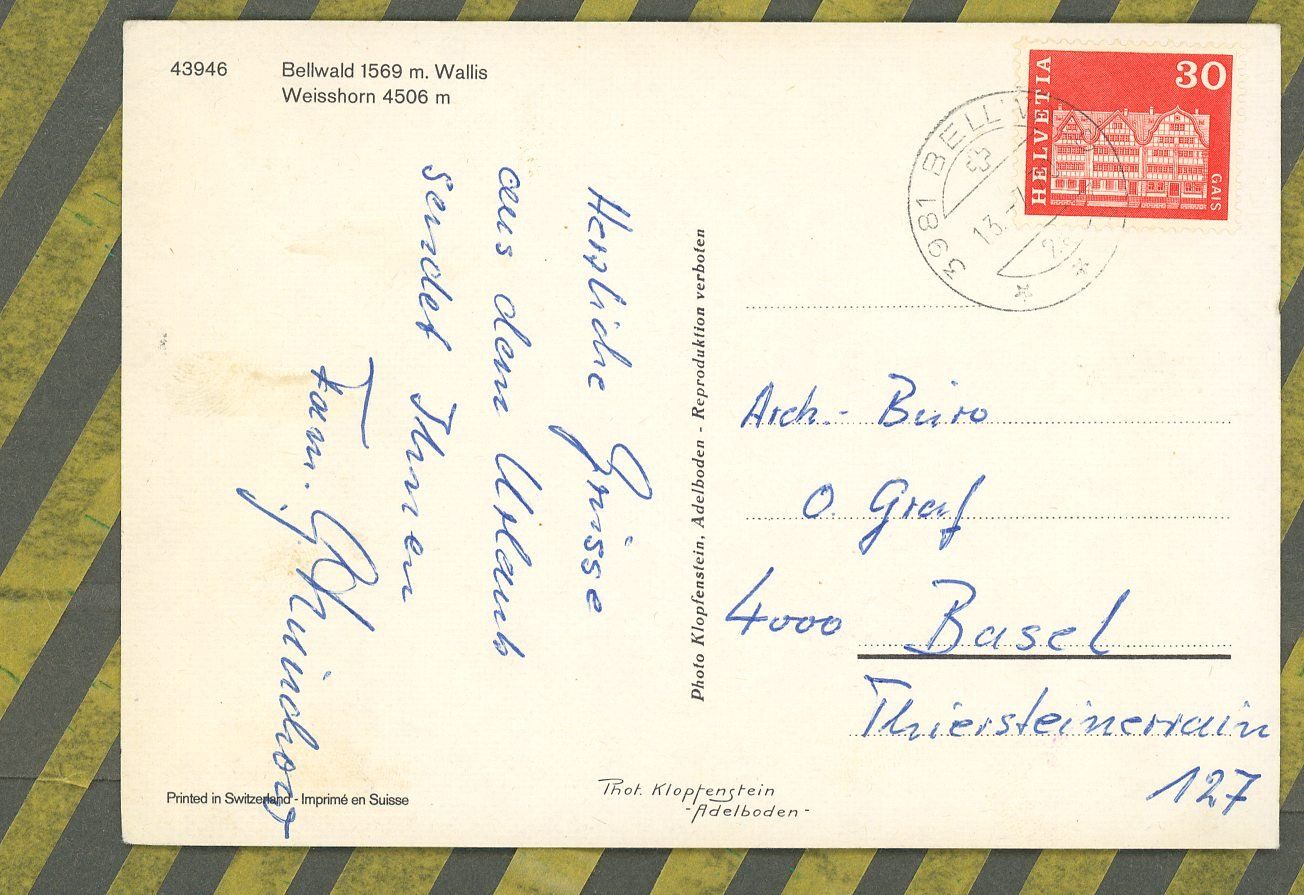 43946 Bellwald 1569 m. Wallis
Weisshorn 4506 m
HELVETIA
30
GAIS
3981 BELLW
13.
Herzliche Grüsse
aus dem Urlaub
sendet Ihnen
Fam.
Photo Klopfenstein, Adelboden - Reproduktion verboten
Arch.- Büro
O. Graf
4000 Basel
Thiersteinerrain
127
Printed in Switzerland - Imprimé en Suisse
Phot. Klopfenstein
- Adelboden -